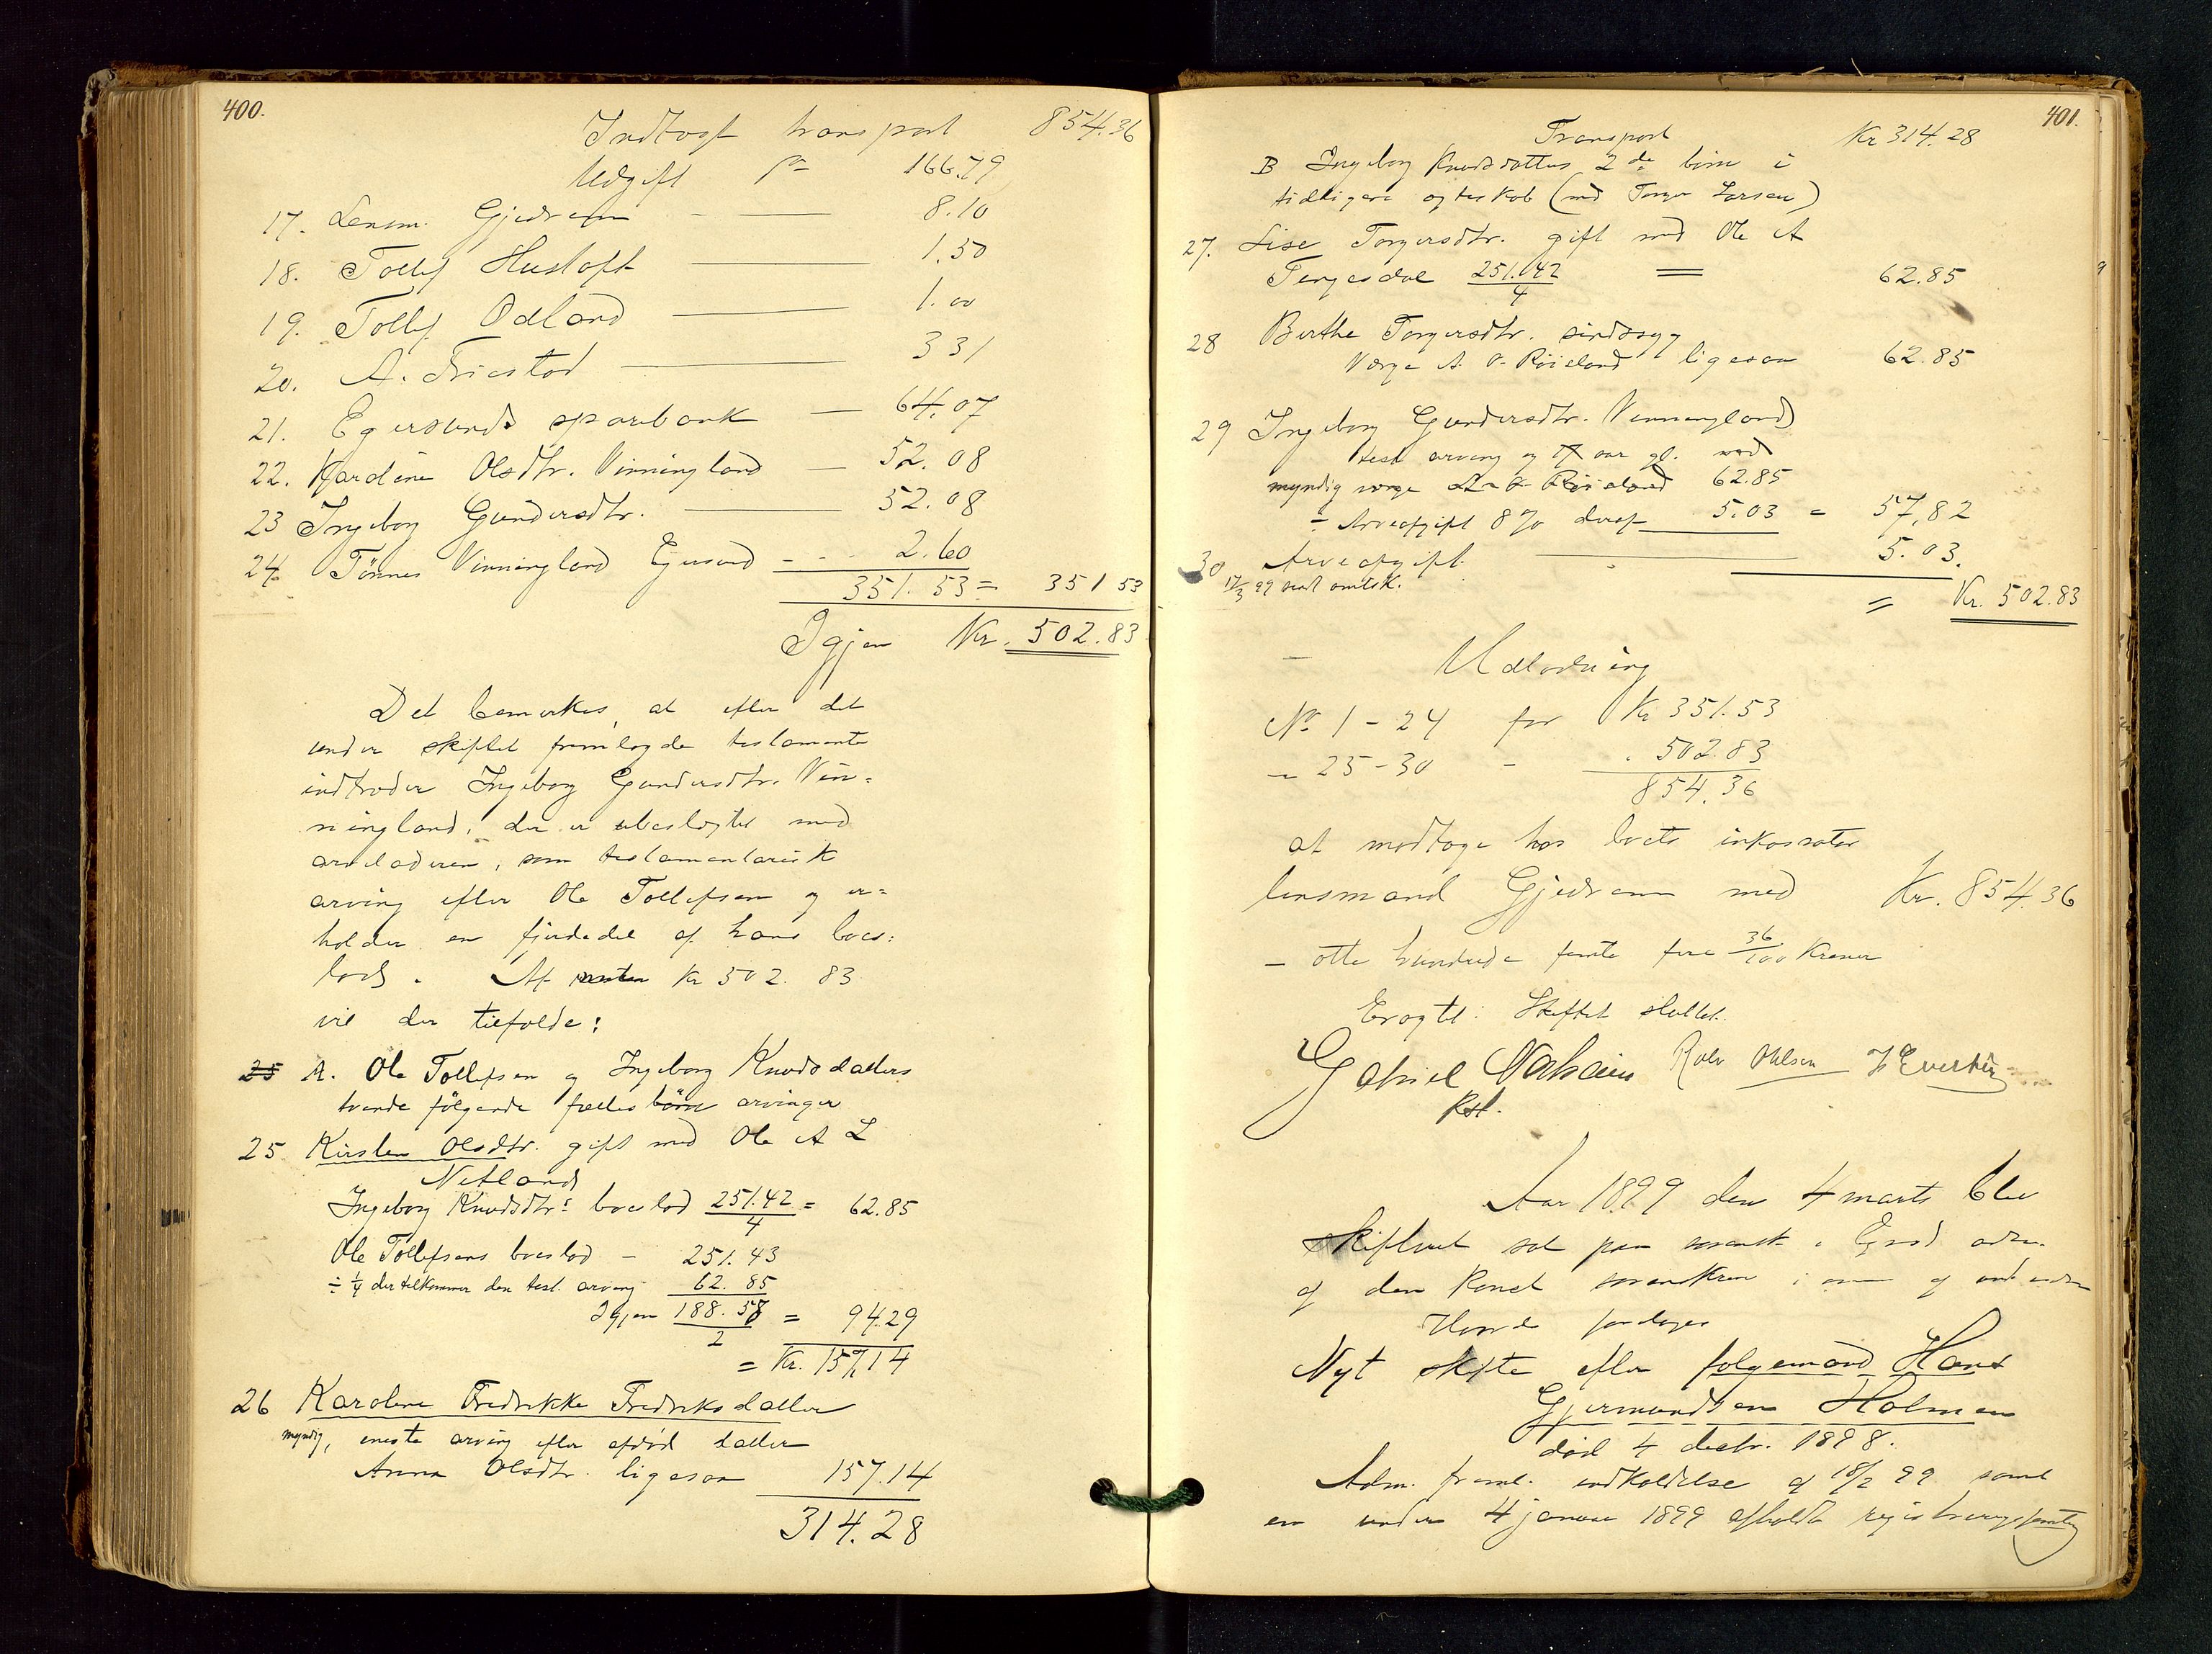 400.
Indtægt transport 854.36
Udgift 166.79
17. Lensm. Gjedrem - — 8.10
18. Tollef Husloft — 1.50
19. Tollef Odland — 1.00
20. A. Friestad — 3 31
21. Egersunds sparebank — 64.07
22. Kardine Olsdtr. Vinningland — 52.08
23 Ingeborg Gundersdtr. — 52.08
24. Tönnes Vinningland Egersund - - - 2.60
351.53 = 351 53
Igjen Kr. 502.83
Det bemerkes, at efter det
under skiftet fremlagde testamente
indtræder Ingeborg Gundersdtr. Vin=
ningland, der er ubeslægtet med
arveladeren, som testamentarisk
arving efter Ole Tollefsen og er=
holder en fjerdedel af hans boes=
lod. Af resten Kr 502. 83
vil der tilfalde:
25 A. Ole Tollefsen og Ingeborg Knudsdatters
tvende følgende fælles börn arvinger
25 Kirsten Olsdtr. gift med Ole A L
Netland
Ingeborg Knudsdtrs boeslod 251.42/4 = 62.85
Ole Tollefsens boeslod - 251.43
÷ 1/4 der tilkommer den test. arving 62.85
Igjen 188.58/2 = 94.29
= Kr. 157.14
26 Karoline Fredrikke Fredriksdatter
myndig, eneste arving efter afdød datter
Anna Olsdtr. ligesaa 157.14
314.28
401.
Transport Kr 314.28
B Ingeborg Knudsdatters 2de börn i
tidligere ægteskab (med Torger Larsen)
27. Lise Torgersdtr. gift med Ole A
Tengesdal 251.42/4 = 62.85
28 Berthe Torgersdtr. sindssyg
Verge A. O. Röisland ligesaa 62.85
29 Ingeborg Gundersdtr. Vinningland
test arving og 17 aar gl. med
myndig verge A. O. Röisland 62.85
÷ Arveafgift 8 % deraf 5.03 = 57.82
30 Arveafgift — 5.03.
17/3 99 sendt amtsk.
= Kr. 502.83
Udlodning
No 1 - 24 for Kr 351.53
- 25 - 30 - . 502.83
854.36
at modtage hos boets inkassator
lensmand Gjedrem med Kr. 854.36
- otte hundrede femti fire 36/100 Kroner
Eragtet: Skiftet sluttet.
Gabriel Rolv Ohlsen
Kst.
Aar 1899 den 4 marts blev
skifteret sat paa sorensk. i Egsd adm.
af den Konst sorenskrever i og
Hvorda foretages
Nyt skifte efter folgemand Hans
Gjermundsen Holmen
död 4 decbr. 1898.
Adm. freml. indkaldelse af 18/2 99 samt
en under 4 januar 1899 afholdt registreringsforretn